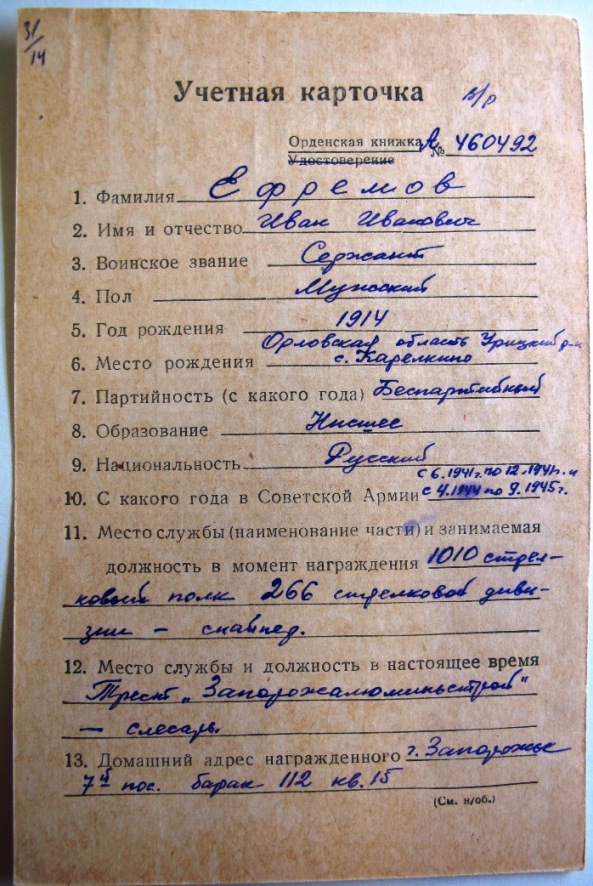 31/14
Учетная карточка в/р
Орденская книжка А № 460492
Удостоверение
1. Фамилия Ефремов
2. Имя и отчество Иван Иванович
3. Воинское звание Сержант
4. Пол Мужской
5. Год рождения 1914
Орловская область Урицкий р-н
6. Место рождения с. Карелкино
7. Партийность (с какого года) Беспартийный
8. Образование Низшее
9. Национальность Русский
с 6.1941г. по 12.1941г. и
10. С какого года в Советской Армии с 4.1944 по 9.1945г.
11. Место службы (наименование части) и занимаемая
должность в момент награждения 1010 стрел-
ковый полк 266 стрелковой диви-
зии – снайпер.
12. Место службы и должность в настоящее время
Трест „Запорожалюминьстрой"
– слесарь.
13. Домашний адрес награжденного г. Запорожье
7й пос. барак 112 кв. 15
(См. н/об.)